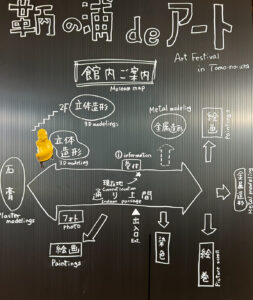 鞆の浦 de アート
Art Festival
in Tomo-no-ura
館内ご案内
Museum map
2F 立体造形
3D modelings
立体造形
3D modeling
Metal modeling
金属造形
絵画
Paintings
① information
受付
石膏
Plaster modelings
現在地
Current location
通り土間
Indoor passage
Metal modeling
フォト
Photo
出入口
Ext.
絵画
Paintings
染色
絵巻
Picture scroll